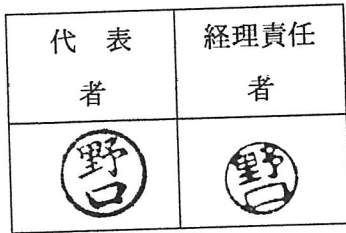 代 表 経理責任
者 者
野口 野口